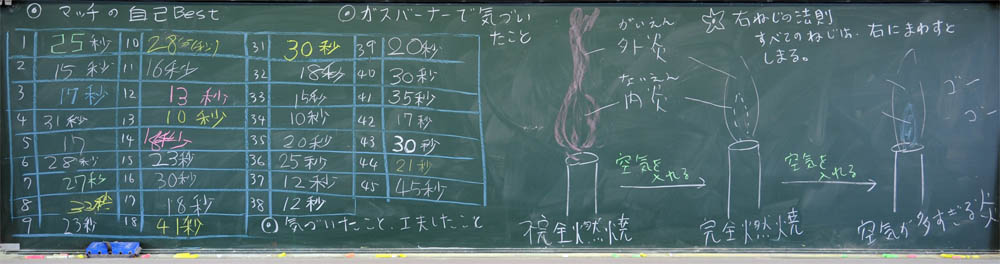 ◎ マッチの自己Best
1 25秒 10 28秒
2 15秒 11 16秒
3 17秒 12 13秒
4 31秒 13 10秒
5 17 14
6 28秒 15 23秒
7 27秒 16 30秒
8 22秒 17 18秒
9 23秒 18 41秒
31 30秒 39 20秒
32 18秒 40 30秒
33 15秒 41 35秒
34 10秒 42 17秒
35 20秒 43 30秒
36 25秒 44 21秒
37 12秒 45 45秒
38 12秒
◎ 気づいたこと、工夫したこと
◎ ガスバーナーで気づい
たこと
がいえん
外炎
ないえん
内炎
空気を
入れる
空気を
入れる
不完全燃焼
完全燃焼
空気が多すぎる炎
ゴー
ゴー
☆ 右ねじの法則
すべてのねじは、右にまわすと
しまる。